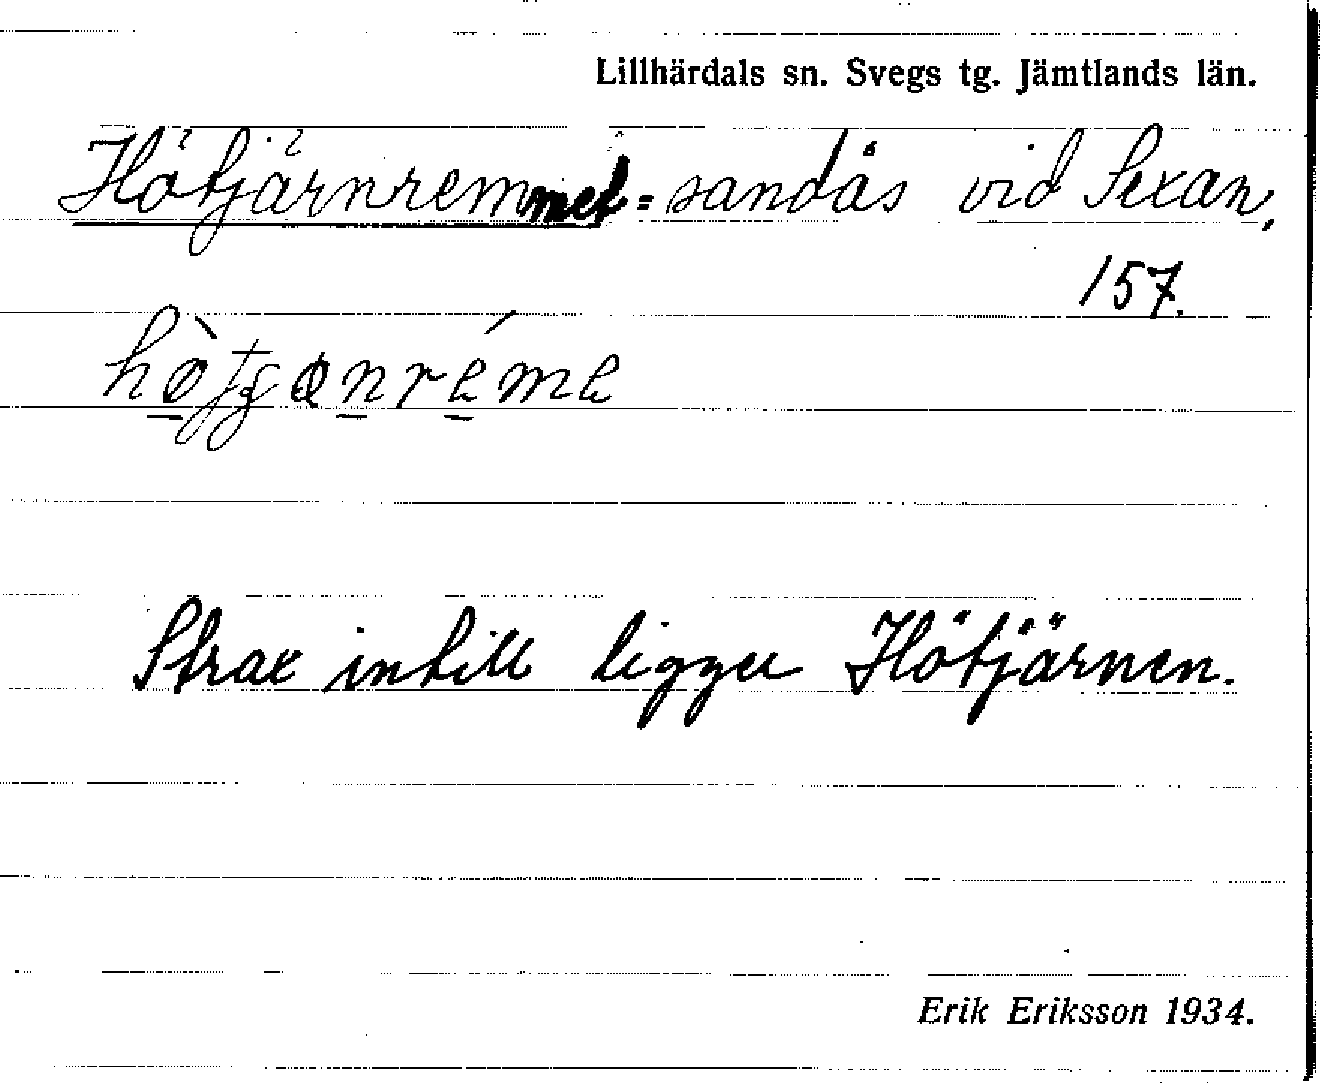 Lillhärdals sn. Svegs tg. Jämtlands län.
Hötjärnremmet = sandås vid Sexan,
157.
Strax intill ligger Hötjärnen.
Erik Eriksson 1934.